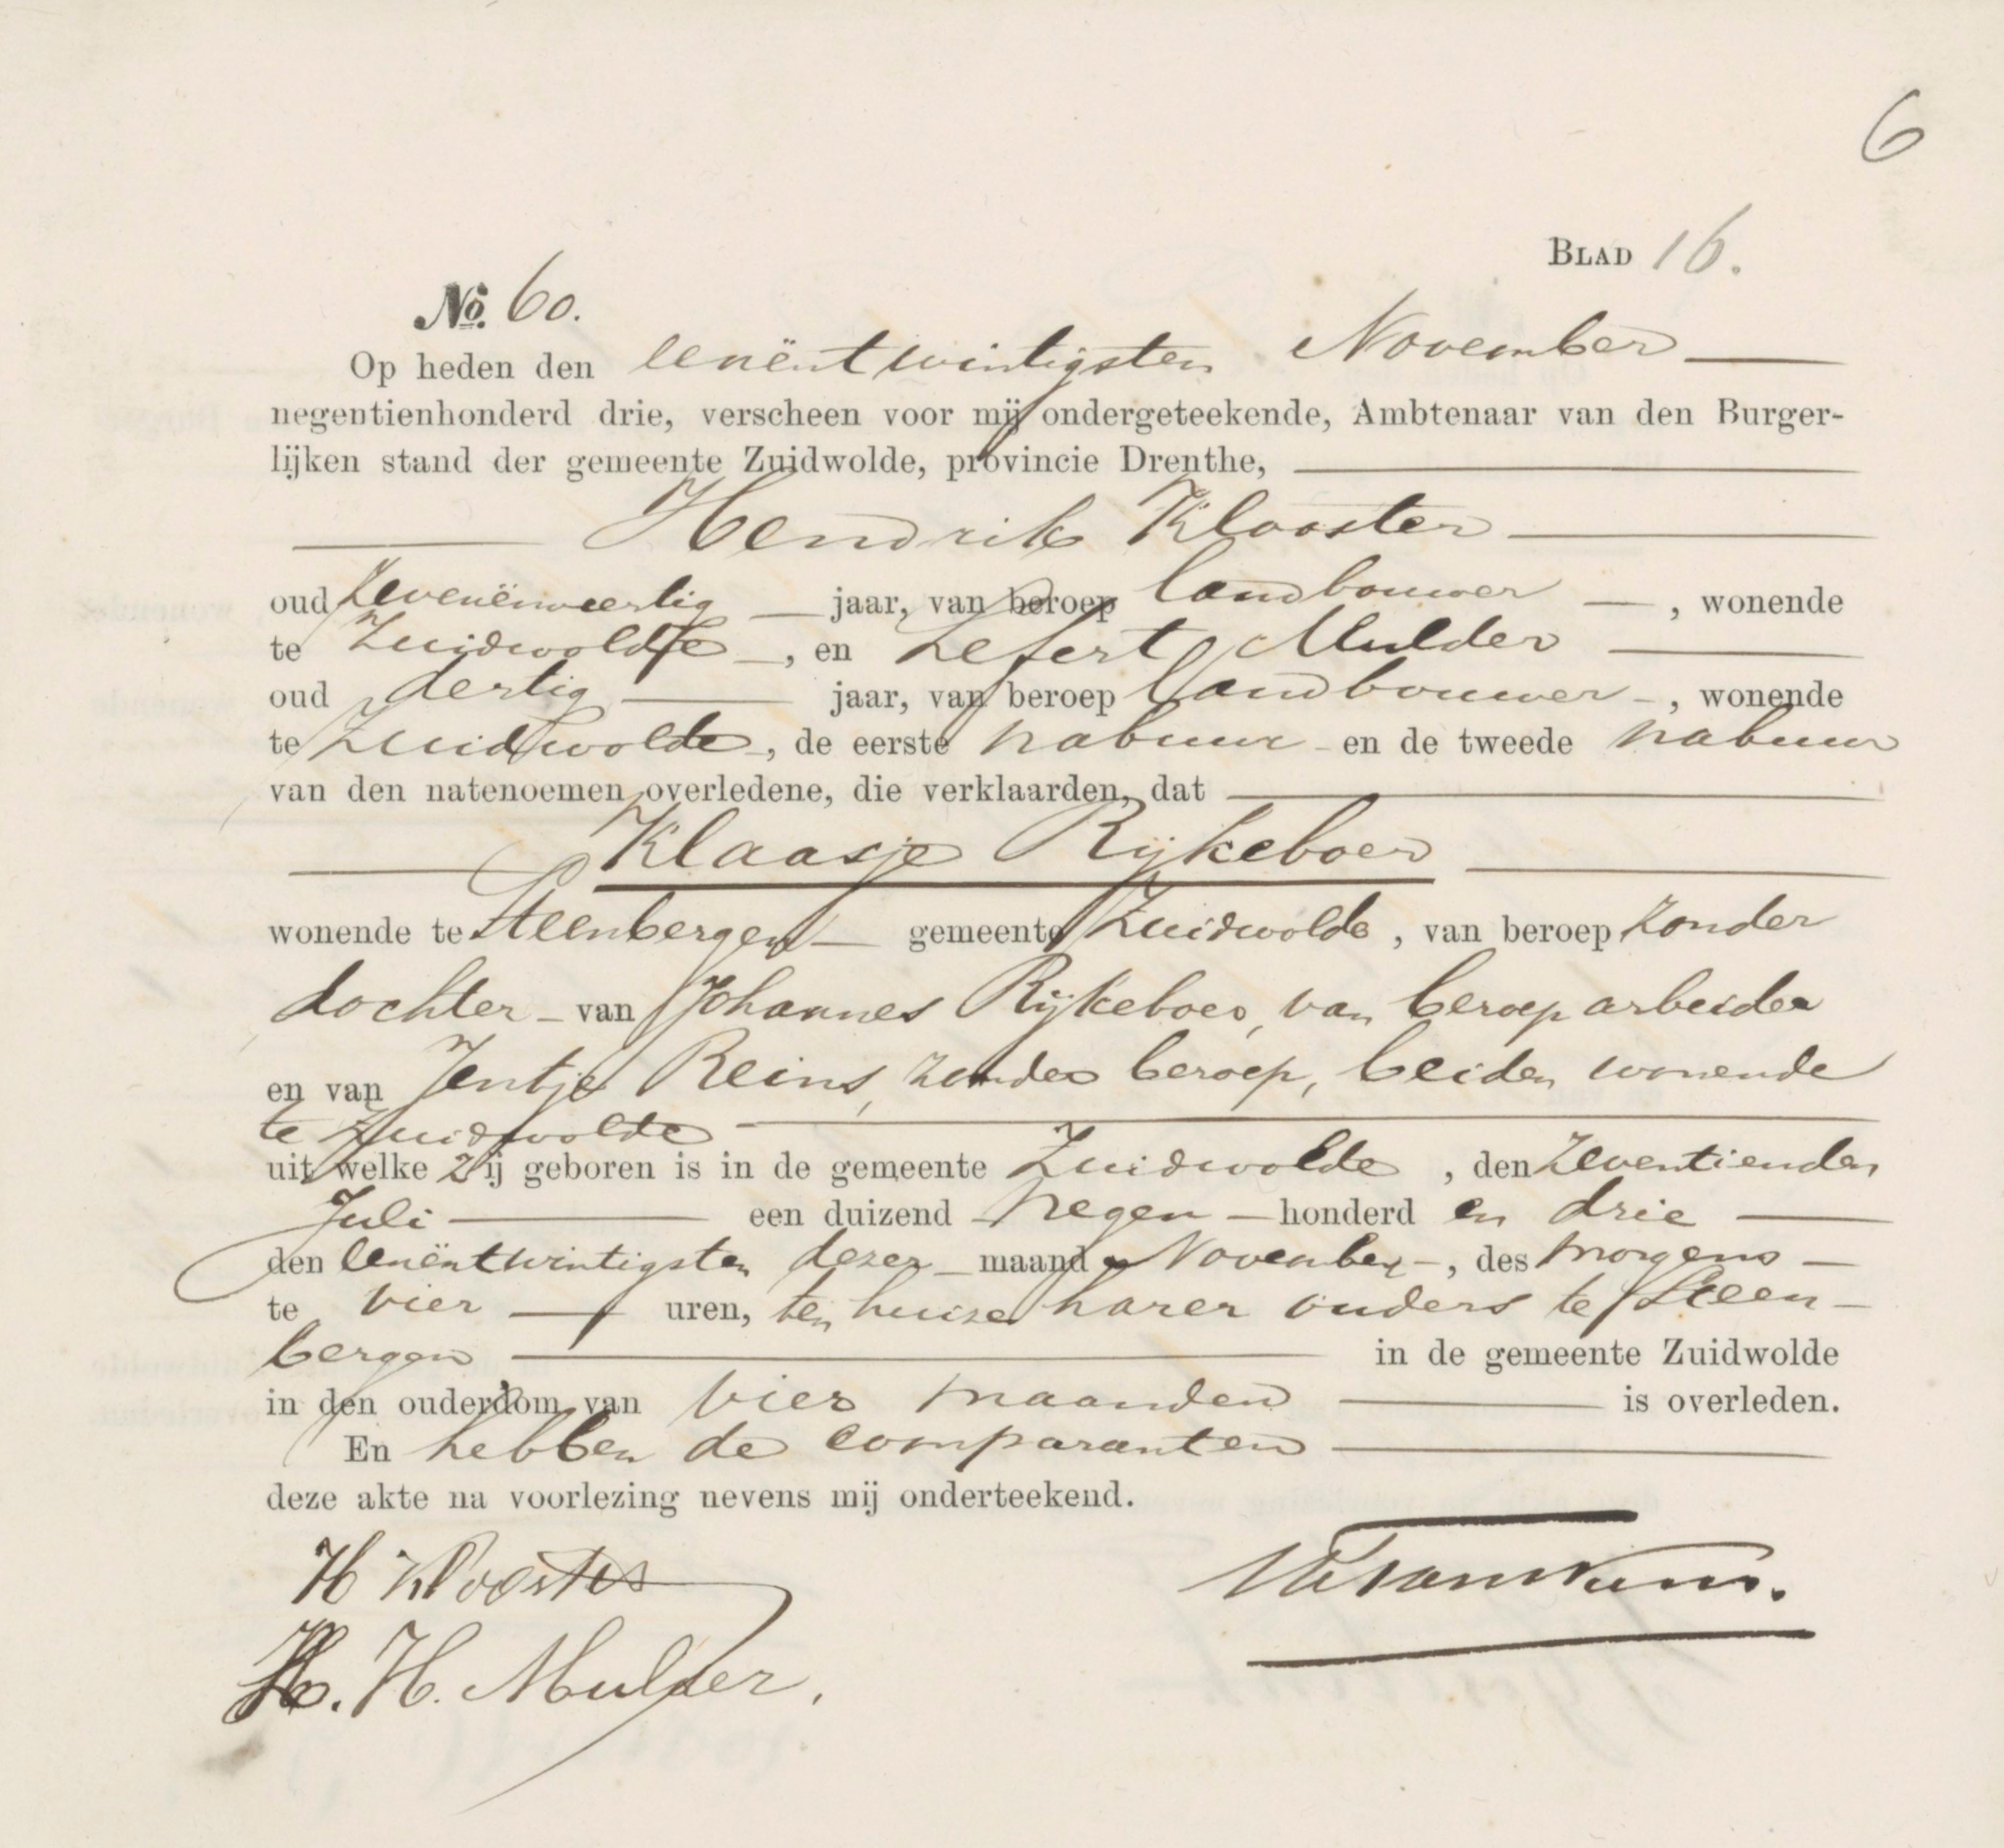 6
BLAD 16.
No. 60.
Op heden den eenëntwintigsten November
negentienhonderd drie, verscheen voor mij ondergeteekende, Ambtenaar van den Burger-
lijken stand der gemeente Zuidwolde, provincie Drenthe,
Hendrik Klooster
oud zevenënveertig jaar, van beroep landbouwer, wonende
te Zuidwolde, en Zefert Mulder
oud dertig jaar, van beroep landbouwer, wonende
te Zuidwolde, de eerste nabuur en de tweede nabuur
van den natenoemen overledene, die verklaarden, dat
Klaasje Rijkeboer
wonende te Steenbergen gemeente Zuidwolde, van beroep zonder
dochter van Johannes Rijkeboer, van beroep arbeider
en van Jentje Reins, zonder beroep, beiden wonende
te Zuidwolde
uit welke zij geboren is in de gemeente Zuidwolde, den zeventienden
Juli een duizend negen honderd en drie
den eenëntwintigsten dezer maand November, des morgens
te vier uren, ten huize harer ouders te Steen-
bergen in de gemeente Zuidwolde
in den ouderdom van vier maanden is overleden.
En hebben de comparanten
deze akte na voorlezing nevens mij onderteekend.
H Klooster
H. Mulder